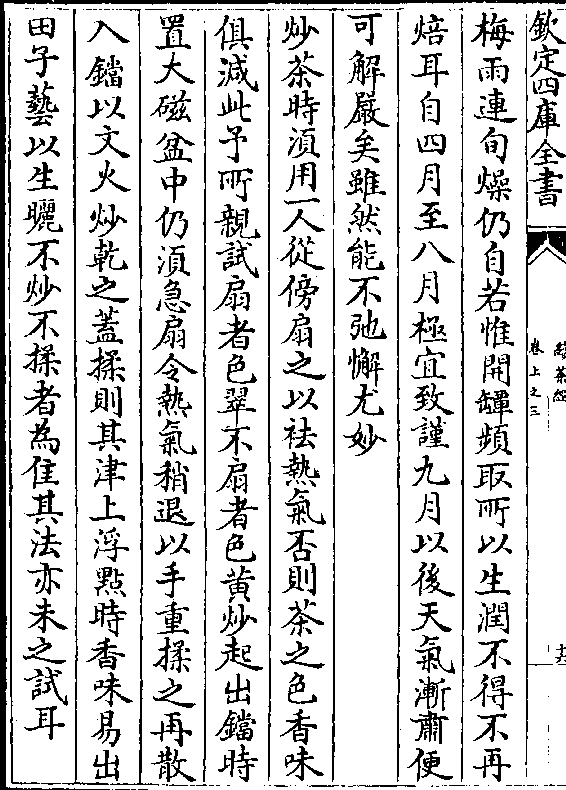 欽定四庫全書
續茶經
卷上之三
梅雨連旬燥仍自若惟開罈頻取所以生潤不得不再
焙耳自四月至八月極宜致謹九月以後天氣漸肅便
可解嚴矣雖然能不弛懈尤妙
炒茶時須用一人從傍扇之以祛熱氣否則茶之色香味
俱減此予所親試扇者色翠不扇者色黄炒起出鐺時
置大磁盆中仍須急扇令熱氣稍退以手重揉之再散
入鐺以文火炒乾之蓋揉則其津上浮點時香味易出
田子藝以生曬不炒不揉者為佳其法亦未之試耳